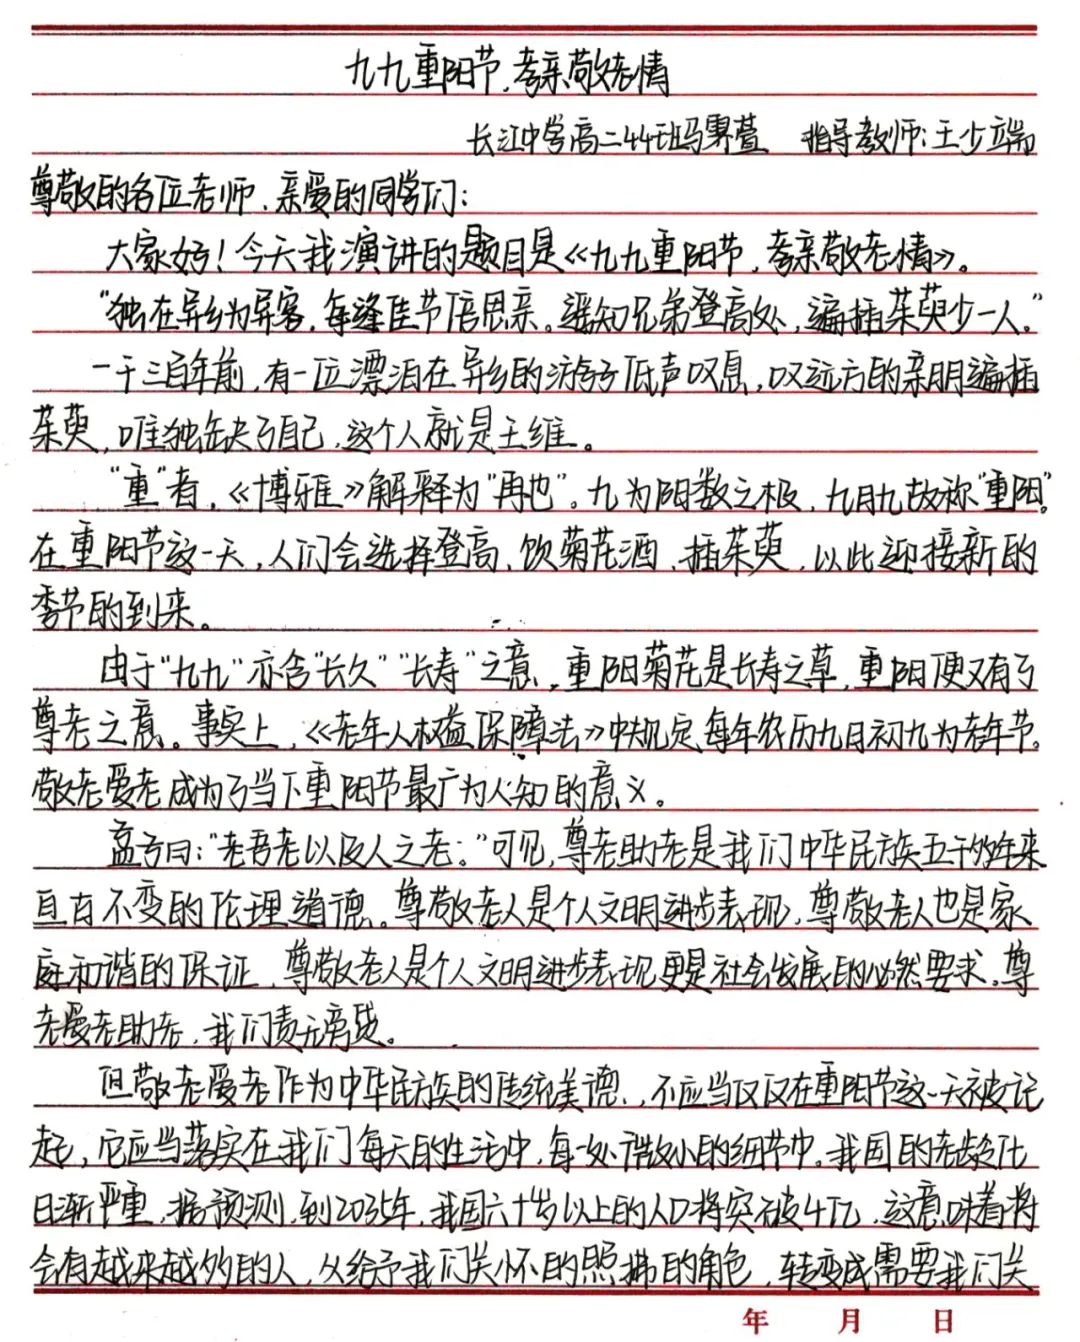 九九重阳节,孝亲敬老情
长江中学高二44班马霁萱 指导教师:王少端
尊敬的各位老师、亲爱的同学们:
大家好!今天我演讲的题目是《九九重阳节,孝亲敬老情》。
“独在异乡为异客,每逢佳节倍思亲。遥知兄弟登高处,遍插茱萸少一人。”
一千三百年前,有一位漂泊在异乡的游子低声叹息,叹远方的亲朋遍插
茱萸,唯独缺了自己,这个人就是王维。
“重”者,《博雅》解释为“再也”。九为阳数之极,九月九故称“重阳”。
在重阳节这一天,人们会选择登高、饮菊花酒、插茱萸,以此迎接新的
季节的到来。
由于“九九”亦含“长久”“长寿”之意,重阳菊花是长寿之草,重阳便又有了
尊老之意。事实上,《老年人权益保障法》中规定每年农历九月初九为老年节。
敬老爱老成为了当下重阳节最广为人知的意义。
孟子曰:“老吾老以及人之老。”可见,尊老助老是我们中华民族五千多年来
亘古不变的伦理道德。尊敬老人是个人文明进步表现,尊敬老人也是家
庭和谐的保证,尊敬老人是个人文明进步表现更是社会发展的必然要求。尊
老爱老助老,我们责无旁贷。
但敬老爱老作为中华民族的传统美德,不应当仅仅在重阳节这一天被记
起,它应当落实在我们每天的生活中,每一处微小的细节中。我国的老龄化
日渐严重,据预测,到2035年,我国六十岁以上的人口将突破4亿,这意味着将
会有越来越多的人,从给予我们关怀的照拂的角色,转变成需要我们关
年 月 日